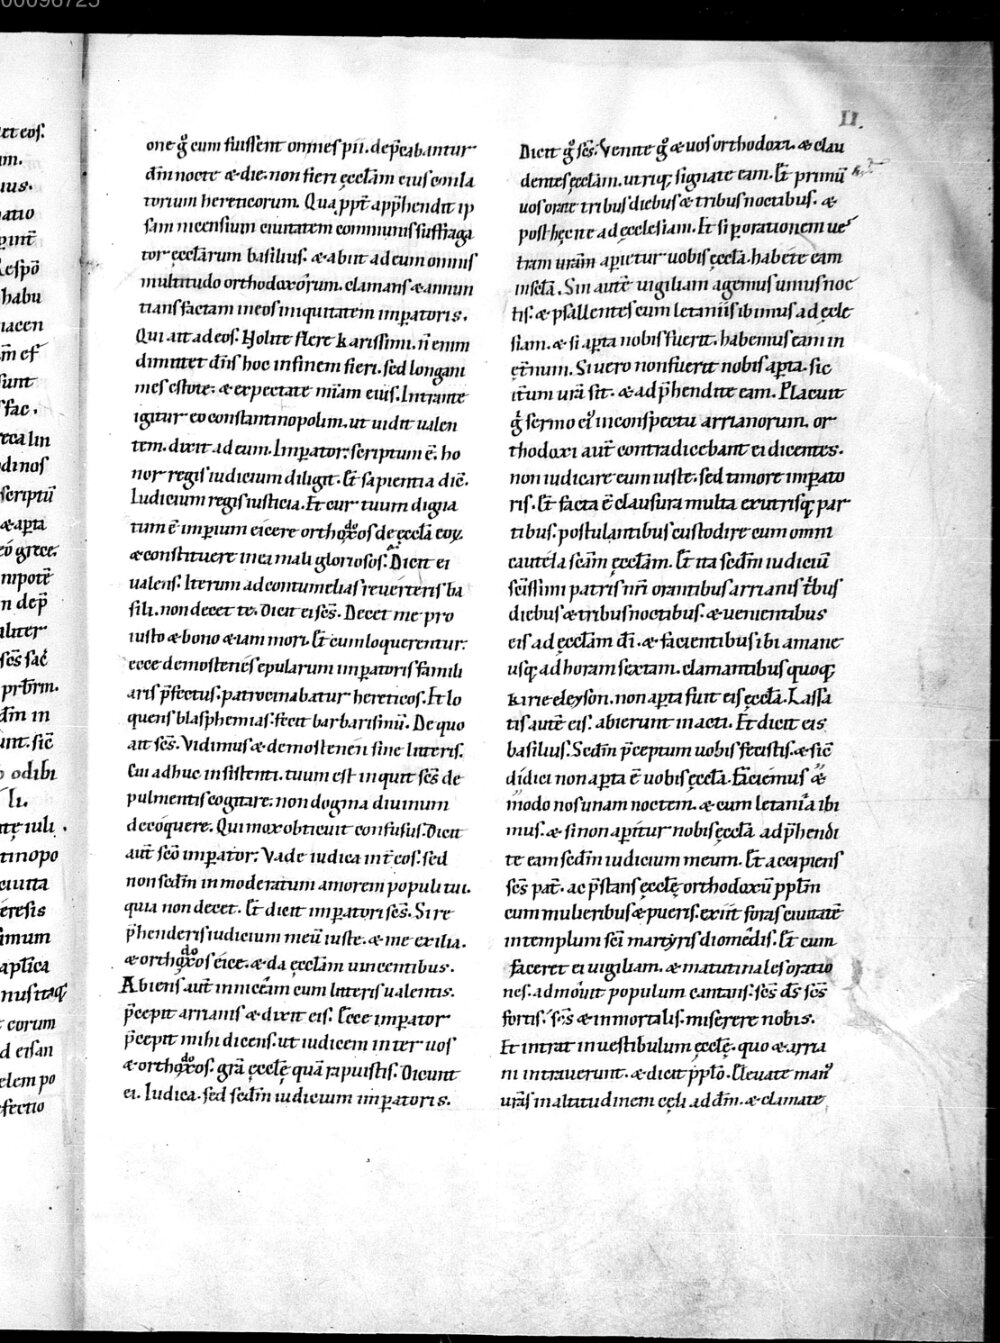 00096725
II.
one gͦ cum fuissent omnes pii. dep̄cabantur
dn̄m nocte & die. non fieri ęccl̄am eius emila
torium hereticorum. Qua ꝓpt̄ app̄hendit ip
sam nicensium ciuitatem communis suffraga
tor eccl̄arum basilius. & abiit ad eum omnis
multitudo orthodoxorum. clamans & annun
tians factam in eos iniquitatem imꝑatoris.
Qui ait ad eos. Nolite flere karissimi. n̄ enim
dimittet dn̄s hoc in finem fieri. sed longani
mes estote. & expectate mīam eius. Intrante
igitur eo constantinopolim. ut uidit ualen
tem. dixit ad eum. Imꝑator. scriptum ē. ho
nor regis iudicium diligit. Et sapientia diē.
Iudicium regis iusticia. Et cur tuum digna
tum ē imꝑium eicere orthodoxos de ęccl̄a eoꝝ.
& constituere in ea mali gloriosos. Dicit ei
ualens. Iterum ad contumelias reuerteris ba
sili. non decet te. Dicit ei sc̄s. Decet me pro
iusto & bono etiam mori. Et cum loquerentur.
ecce demostenes epularum imꝑatoris famili
aris p̄fectus. patrocinabatur hereticos. Et lo
quens blasphemias. fecit barbarismū. De quo
ait sc̄s. Vidimus & demostenen sine litteris.
Cui adhuc insistenti. tuum est inquit sc̄s de
pulmentis cogitare. non dogma diuinum
decoquere. Qui mox obticuit confusus. Dicit
aut̄ sc̄o imꝑator. Vade iudica int̄ eos. sed
non sedm̄ inmoderatum amorem populi tui.
quia non decet. Et dicit imꝑatori sc̄s. Si re
p̄henderis iudicium meū iuste. & me exilia.
& orthodoxos eice. & da ęccl̄am uincentibus.
Abiens aut̄ in nicēam cum litteris ualentis.
p̄cepit arrianis & dixit eis. Ecce imꝑator
p̄cepit mihi dicens. ut iudicem inter uos
& orthodoxos. grā ęccl̄ę quā rapuistis. Dicunt
ei. Iudica. sed sedm̄ iudicium imꝑatoris.
Dicit gͦ sc̄s. Venite gͦ & uos orthodoxi. & clau
dentes ęccl̄am. utriq; signate eam. Et primū
uos orate tribus diebus & tribus noctibus. &
post hęc ite ad ęcclesiam. Et si ꝑ orationem ues
tram uram aꝑietur uobis ęccl̄a. habete eam
Sin autē uigiliam agemus unius noc
tis. & psallentes cum letaniis ibimus ad ęccle
siam. & si aꝑta nobis fuerit. habemus eam in
ęt̄num. Si uero non fuerit nobis aꝑta. sic
it̄um urā sit. & adp̄hendite eam. Placuit
sermo eiꝰ in conspectu arrianorum. or
thodoxi aut̄ contradicebant ei dicentes.
non iudicare eum iuste. sed timore imꝑato
ris. Et facta ē clausura multa ex utrisq; par
tibus. postulantibus custodire cum omni
cautela sc̄am ęccl̄am. Et ita sedm̄ iudiciū
sc̄issimi patris nr̄i orantibus arrianis tⁱbus
diebus & tribus noctibus. & uenientibus
eis ad ęccl̄am dī. & facientibus ibi a mane
usq; ad horam sextam. clamantibus quoq;
kirieeleyson. non aꝑta fuit eis ęccl̄a. Lassa
tis autē eis. abierunt inacti. Et dicit eis
basilius. Sedm̄ p̄ceptum uobis fecistis. & sic̄
didici non aꝑta ē uobis ęccl̄a. Faciemus &
modo nos unam noctem. & cum letania ibi
mus. & si non aꝑitur nobis ęccl̄a adp̄hendi
te eam sedm̄ iudicium meum. Et accipiens
sc̄s pat̄. ac p̄stans ęccl̄ę orthodoxū ppl̄m
cum mulieribus & pueris. exiit foras ciuitatē
in templum sc̄i martyris diomedis. Et cum
faceret ei uigiliam. & matutinales oratio
nes. admouit populum cantans. sc̄s d̄s sc̄s
fortis. sc̄s & inmortalis. miserere nobis.
Et intrat in uestibulum ęccl̄ę. quo & arria
ni intrauerunt. & dicit pplo. Eleuate manꝰ
urās in altitudinem cęli ad dn̄m. & clamate